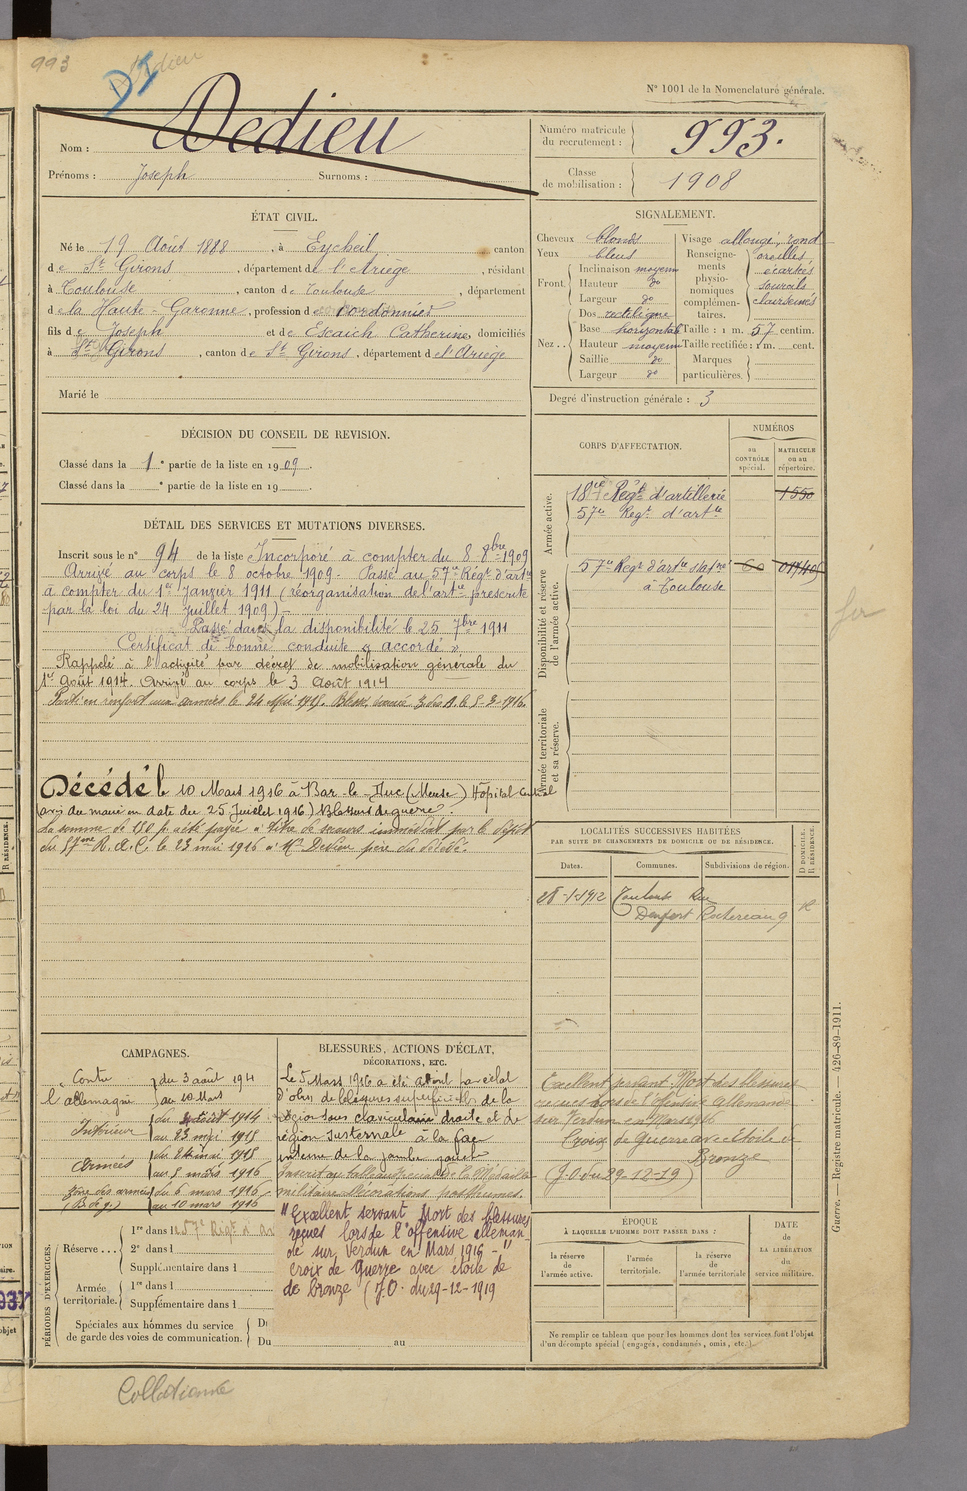 993
Dedieu
DI
N° 1001 de la Nomenclature générale.
Nom : Dedieu
Prénoms : Joseph Surnoms :
Numéro matricule du recrutement : 993.
Classe de mobilisation : 1908
ÉTAT CIVIL.
Né le 19 Août 1888, à Eycheil canton
de St Girons, département de l'Ariège, résidant
à Toulouse, canton de Toulouse, département
de la Haute-Garonne, profession de cordonnier
fils de Joseph et de Escaich Catherine, domiciliés
à St Girons, canton de St Girons, département de l'Ariège
Marié le
SIGNALEMENT.
Cheveux blonds
Yeux bleus
Front. Inclinaison moyenne
Hauteur do
Largeur do
Nez.. Dos rectiligne
Base horizontale
Hauteur moyenne
Saillie do
Largeur do
Visage allongé, rond
Renseignements physionomiques complémentaires. oreilles
écartées
sourcils
clairsemés
Taille : 1 m. 57 centim.
Taille rectifiée : 1 m. cent.
Marques particulières.
Degré d'instruction générale : 3
DÉCISION DU CONSEIL DE REVISION.
Classé dans la 1e partie de la liste en 1909.
Classé dans la e partie de la liste en 19 .
DÉTAIL DES SERVICES ET MUTATIONS DIVERSES.
Inscrit sous le n° 94 de la liste Incorporé à compter du 8 8bre 1909
Arrivé au corps le 8 octobre 1909 - Passé au 57e Régt d'artie
à compter du 1er Janvier 1911 (réorganisation de l'artie prescrite
par la loi du 24 Juillet 1909) -
Passé dans la disponibilité le 25 7bre 1911
Certificat de bonne conduite « accordé »
Rappelé à l'activité par décret de mobilisation générale du
1er Août 1914. Arrivé au corps le 3 Août 1914
Parti en renfort aux armées le 24 Mai 1915. Blessé, évacué Z. des A. le 5-3-1916.
Décédé le 10 Mars 1916 à Bar-le-Duc (Meuse) Hôpital Central
(avis du maire en date du 25 Juillet 1916) Blessures de guerre.
La somme de 150 f. a été payée à titre de secours immédiat par le dépôt
du 57ème R. A. C. le 23 mai 1916 à Mr Dedieu père du décédé.
CORPS D'AFFECTATION.
NUMÉROS
au CONTRÔLE spécial.
MATRICULE ou au répertoire.
Armée active.
18e Régt d'artillerie 1550
57e Regt d'artie
Disponibilité et réserve de l'armée active.
57e Regt d'artie
à Toulouse
Armée territoriale et sa réserve.
LOCALITÉS SUCCESSIVES HABITÉES
PAR SUITE DE CHANGEMENTS DE DOMICILE OU DE RÉSIDENCE.
Dates. Communes. Subdivisions de région.
D DOMICILE. R RÉSIDENCE.
28-1-1912 Toulouse Rue R
Denfert Rochereau 9
CAMPAGNES.
Contre l'allemagne du 3 août 1914
au 10 Mars
Intérieur du 3 août 1914
au 23 mai 1915
Armées du 24 mai 1915
au 5 mars 1916
Zone des armées du 6 mars 1916
(B. de g.) au 10 mars 1916
BLESSURES, ACTIONS D'ÉCLAT,
DÉCORATIONS, ETC.
Le 5 Mars 1916 a été atteint par éclat
d'obus de blessures superficielles de la
région sous claviculaire droite et de
région susternale à la face
interne de la jambe gauche
Inscrit au tableau spécial de la Médaille
militaire Décorations posthumes.
"Excellent servant Mort des blessures
reçues lors de l'offensive alleman-
de sur Verdun en Mars 1916 - "
Croix de Guerre avec étoile de
de bronze (J.O. du 29-12-1919
Excellent servant. Mort des blessures
reçues lors de l'offensive allemande
sur Verdun en Mars 1916
Croix de Guerre avec Etoile de
Bronze
(J.O du 29-12-19)
PÉRIODES D'EXERCICES.
Réserve... 1re dans le 57e Régt d'Ar
2e dans l
Supplémentaire dans l
Armée territoriale. 1re dans l
Supplémentaire dans l
Spéciales aux hommes du service de garde des voies de communication. Du
Du au
ÉPOQUE
À LAQUELLE L'HOMME DOIT PASSER DANS :
la réserve de l'armée active.
l'armée territoriale.
la réserve de l'armée territoriale
DATE DE LA LIBÉRATION du service militaire.
Ne remplir ce tableau que pour les hommes dont les services font l'objet
d'un décompte spécial (engagés, condamnés, omis, etc.)
Guerre. — Registre matricule. — 426-89-1911.
Collationné